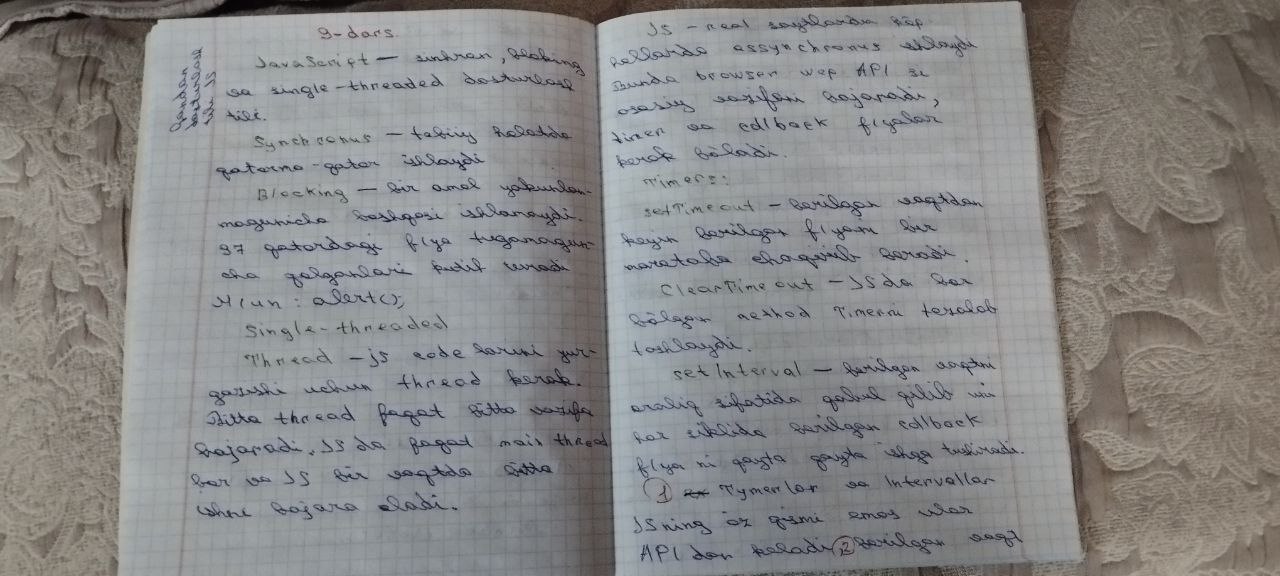 9-dars.
Qandan
dasturlash
tili JS
JavaScript – sinhron, bloking
va single-threaded dasturlash
tili.
Synchronus – tabiiy holatda
qatorma-qator ishlaydi
Blocking – bir amal yakunlan-
magunicha boshqasi ishlamaydi.
97 qatordagi f/ya tugamagun-
cha qolganlari kutib turadi
M-un: alert();
Single-threaded
Thread – js code larini yur-
gazish uchun thread kerak.
Bitta thread faqat bitta vazifa
bajaradi. JS da faqat main thread
bor va JS bir vaqtda bitta
ishni bajara oladi.
JS – real saytlarda ko'p
hollarda assynchronus ishlaydi
Bunda browser wep API si
asosiy vazifani bajaradi,
timer va callback f/yalar
kerak bo'ladi.
Timers:
setTimeout – berilgan vaqtdan
keyin berilgan f/yani bir
marataba chaqirib beradi.
ClearTimeout – JS da bor
bo'lgan method Timerni tozalab
tashlaydi.
setInterval – berilgan vaqtni
oraliq sifatida qabul qilib uni
har siklida berilgan callback
f/ya ni qayta qayta ishga tushiradi.
① Tymerlar va Intervallar
JSning o'z qismi emas ular
API dan keladi ② berilgan vaqt